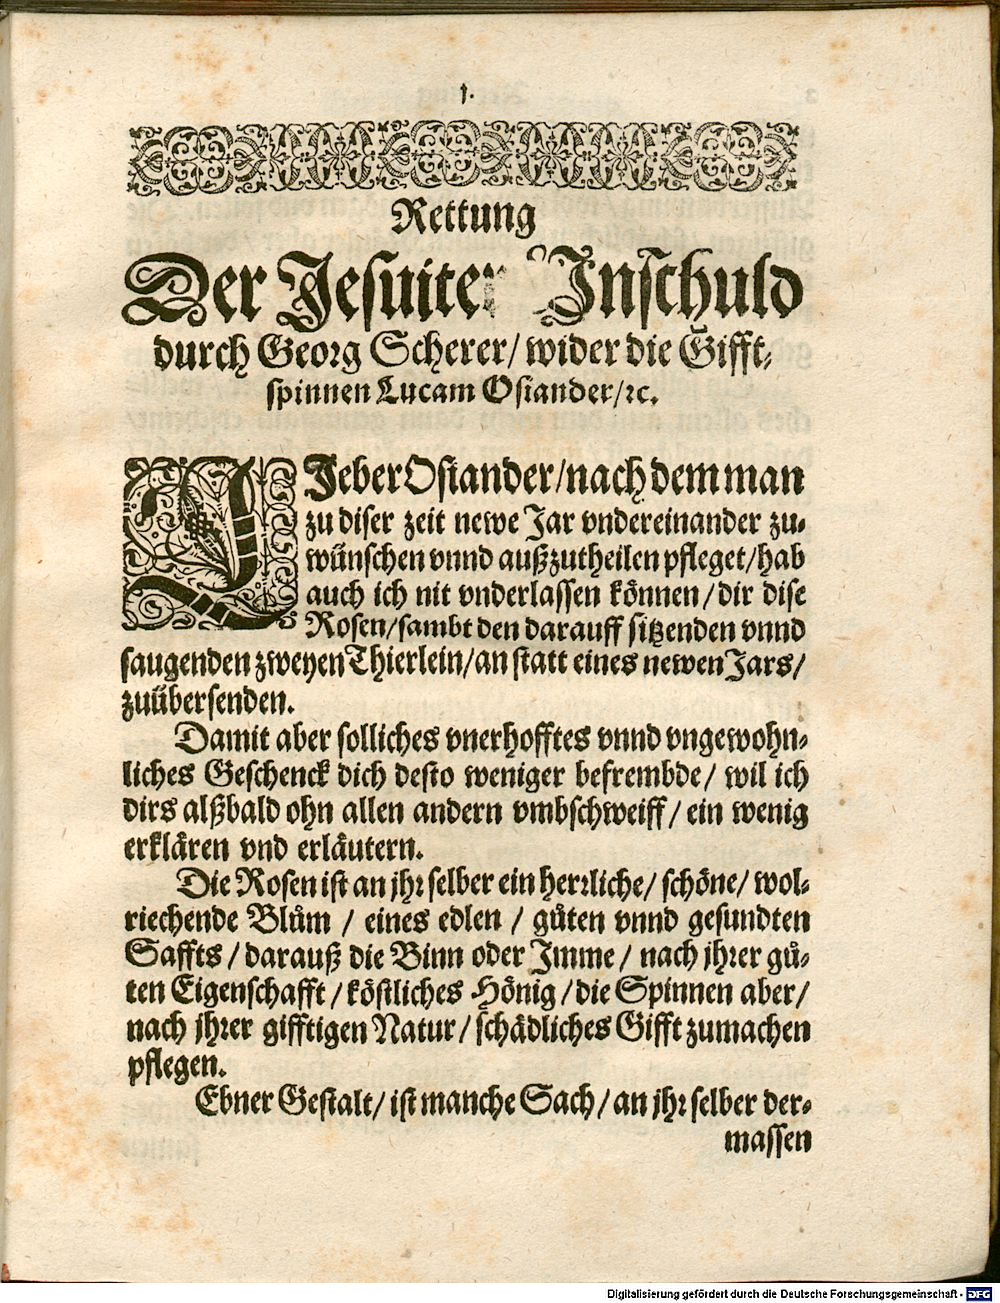 1.
Rettung
Der Jesuiter Vnschuld
durch Georg Scherer/ wider die Gifft⸗
spinnen Lucam Osiander/ ꝛc.
LIeber Osiander/ nach dem man
zu diser zeit newe Jar vndereinander zu⸗
wünschen vnnd außzutheilen pfleget/ hab
auch ich nit vnderlassen können/ dir dise
Rosen/ sambt den darauff sitzenden vnnd
saugenden zweyen Thierlein/ an statt eines newen Jars/
zuübersenden.
Damit aber solliches vnerhofftes vnnd vngewohn⸗
liches Geschenck dich desto weniger befrembde/ wil ich
dirs alßbald ohn allen andern vmbschweiff/ ein wenig
erklären vnd erläutern.
Die Rosen ist an jhr selber ein herrliche/ schöne/ wol⸗
riechende Blům / eines edlen / gůten vnnd gesundten
Saffts / darauß die Binn oder Imme / nach jhrer gů⸗
ten Eigenschafft / köstliches Hönig / die Spinnen aber/
nach jhrer gifftigen Natur/ schädliches Gifft zumachen
pflegen.
Ebner Gestalt/ ist manche Sach/ an jhr selber der⸗
massen
Digitalisierung gefördert durch die Deutsche Forschungsgemeinschaft - DFG